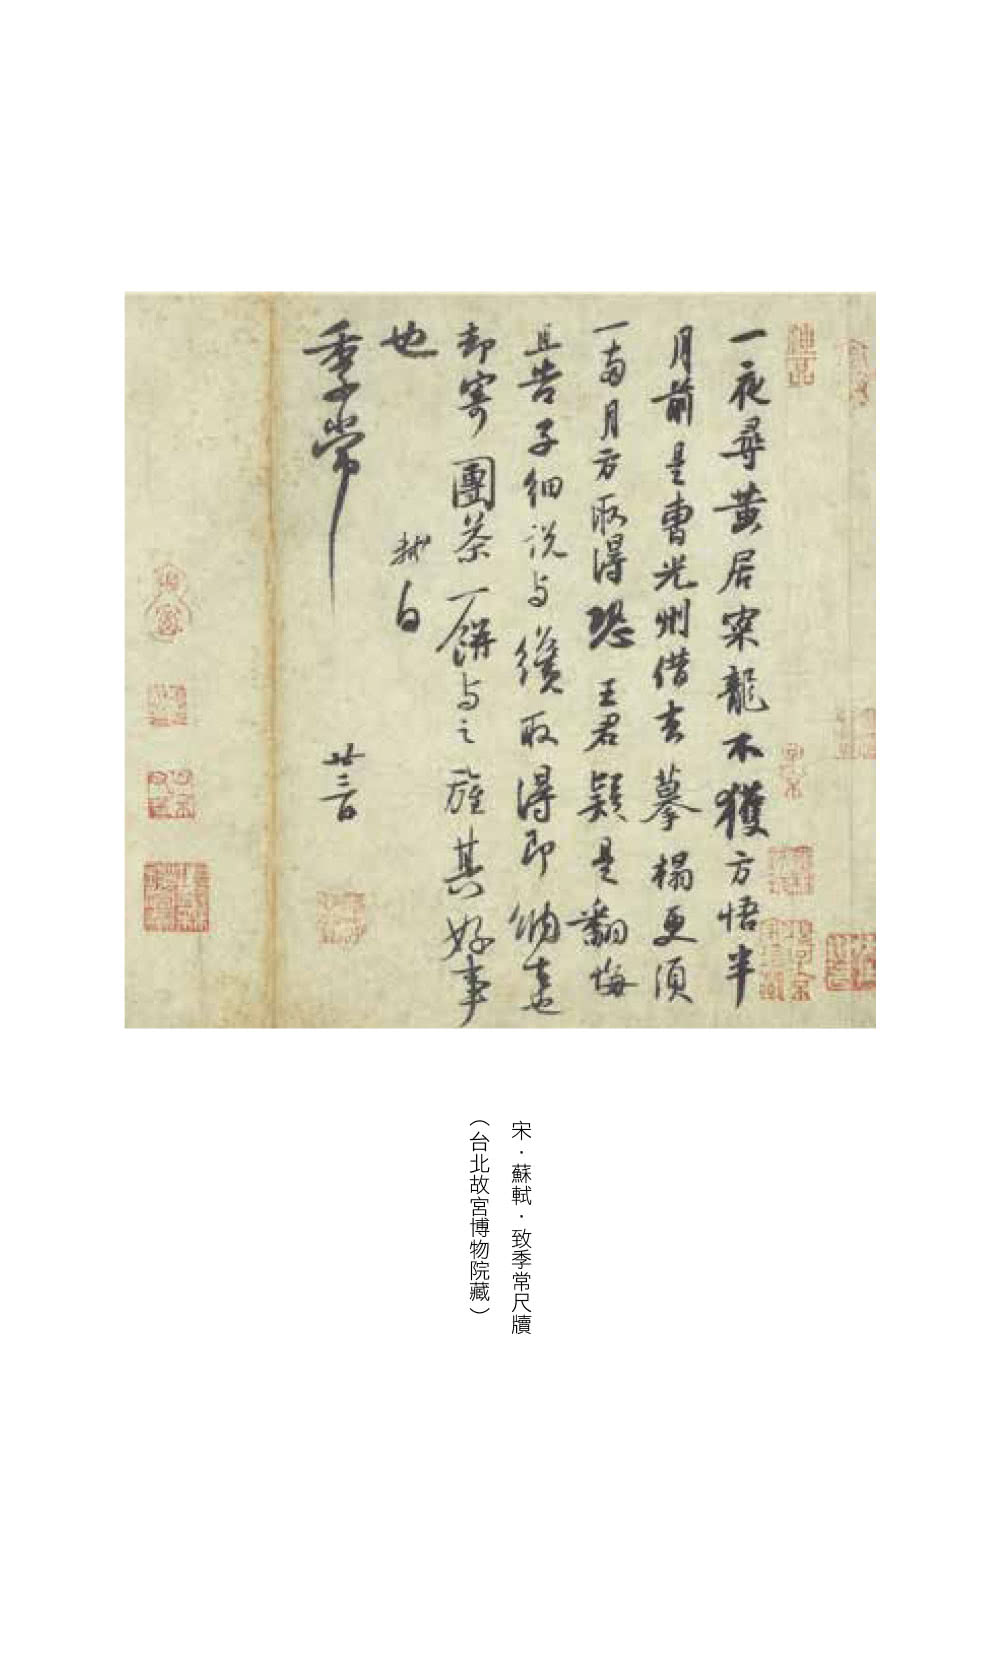 一夜尋黃居寀龍不獲方悟半
月前是曹光州借去摹榻更須
一兩月方取得恐王君疑是翻悔
且告子細說与纔取得即納去也
却寄團茶一餅与之旌其好事
也
軾白
季常
廿三日
宋·蘇軾·致季常尺牘
（台北故宮博物院藏）